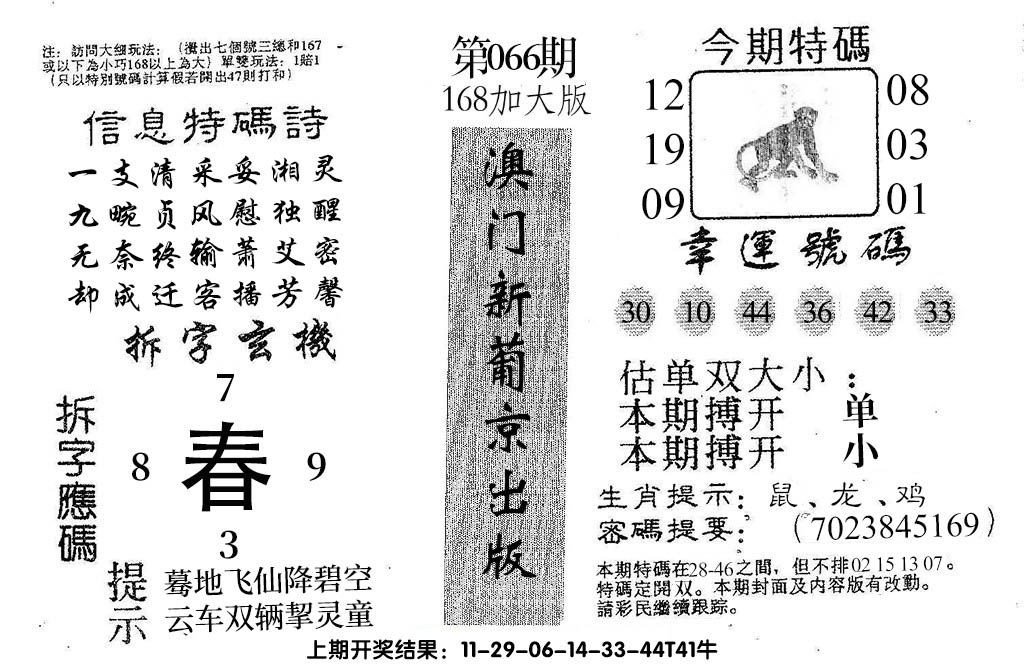 注：訪問大細玩法：（攪出七個號三總和167
或以下為小巧168以上為大）單雙玩法：1賠1
（只以特別號碼計算假若開出47則打和）
信息特碼詩
一支清采妥湘灵
九畹贞风慰独醒
无奈终输萧艾密
却成迁客播芳馨
拆字玄機
拆字應碼
7
8 春 9
3
提示
蓦地飞仙降碧空
云车双辆挈灵童
第066期
168加大版
澳门新葡京出版
今期特碼
12 08
19 03
09 01
幸運號碼
30 10 44 36 42 33
估单双大小：
本期搏开 单
本期搏开 小
生肖提示：鼠、龙、鸡
密碼提要：（7023845169）
本期特碼在28-46之間，但不排02 15 13 07。
特碼定開双。本期封面及内容版有改動。
請彩民繼續跟踪。
上期开奖结果：11-29-06-14-33-44T41牛